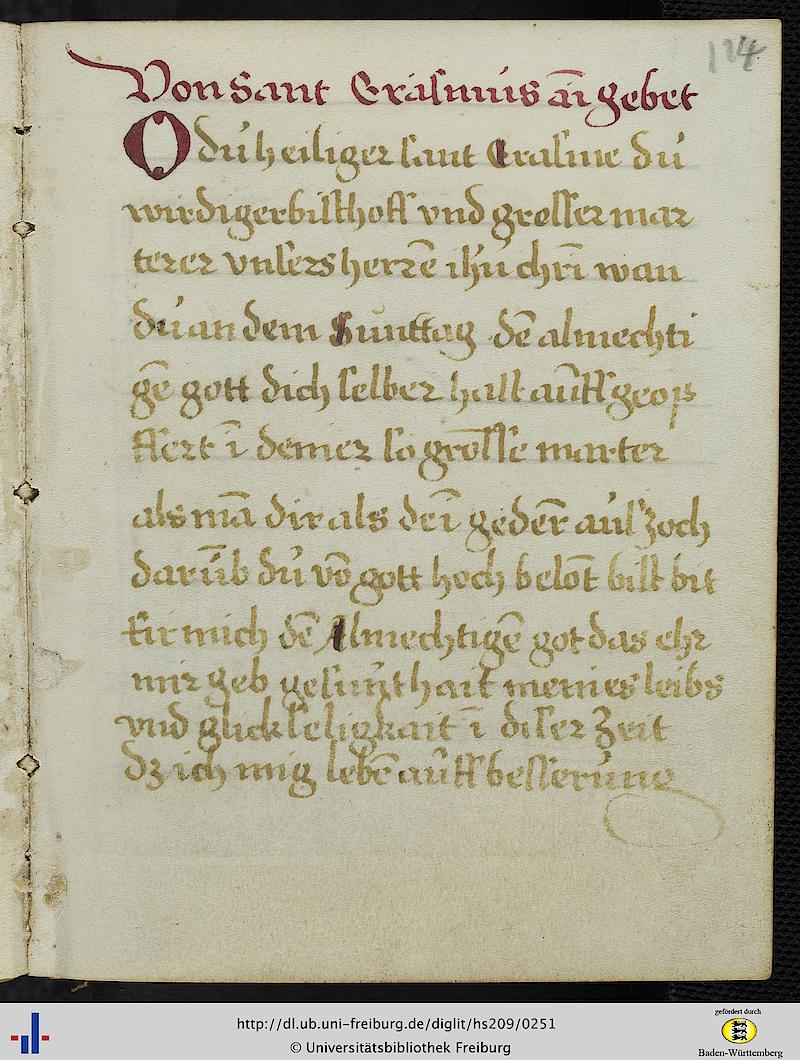 124
Von Sant Erasmus ain gebet
O du heiliger sant Erasme du
wirdiger bisthoff vnd grosser mar
terer vnsers herrē ihū chrī wan
du an dem Sunttag dē almechti
gē gott dich selber hast aūff geop
ffert ī deiner so grosse marter
als mā dir als deī gederm aus zoch
darūb du vō gott hoch belōt bist bit
fir mich dē Almechtigē got das ehr
mir geb gesunthait meines leibs
vnd glickseligkait ī diser zeit
dz ich mig lebē aūff besserung
http://dl.ub.uni-freiburg.de/diglit/hs209/0251
© Universitätsbibliothek Freiburg
gefördert durch
Baden-Württemberg